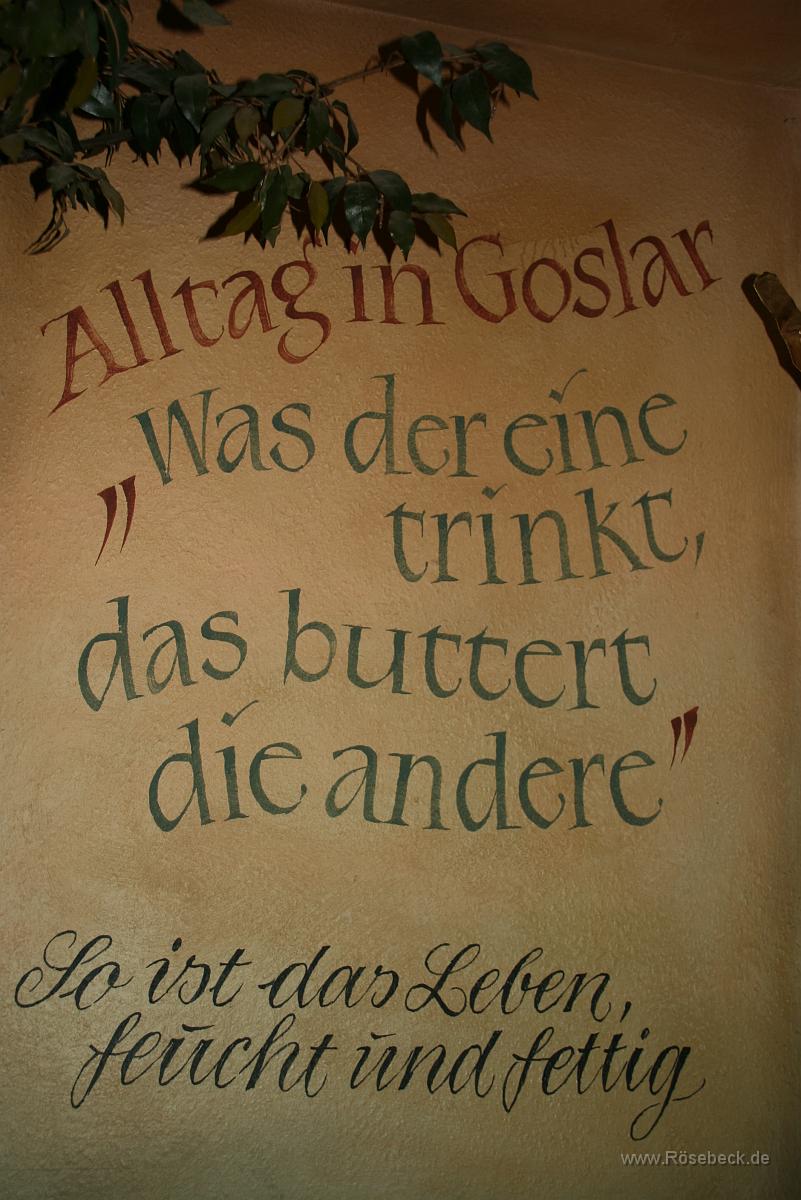 Alltag in Goslar
"Was der eine
trinkt,
das buttert
die andere"
So ist das Leben,
feucht und fettig
www.Rösebeck.de